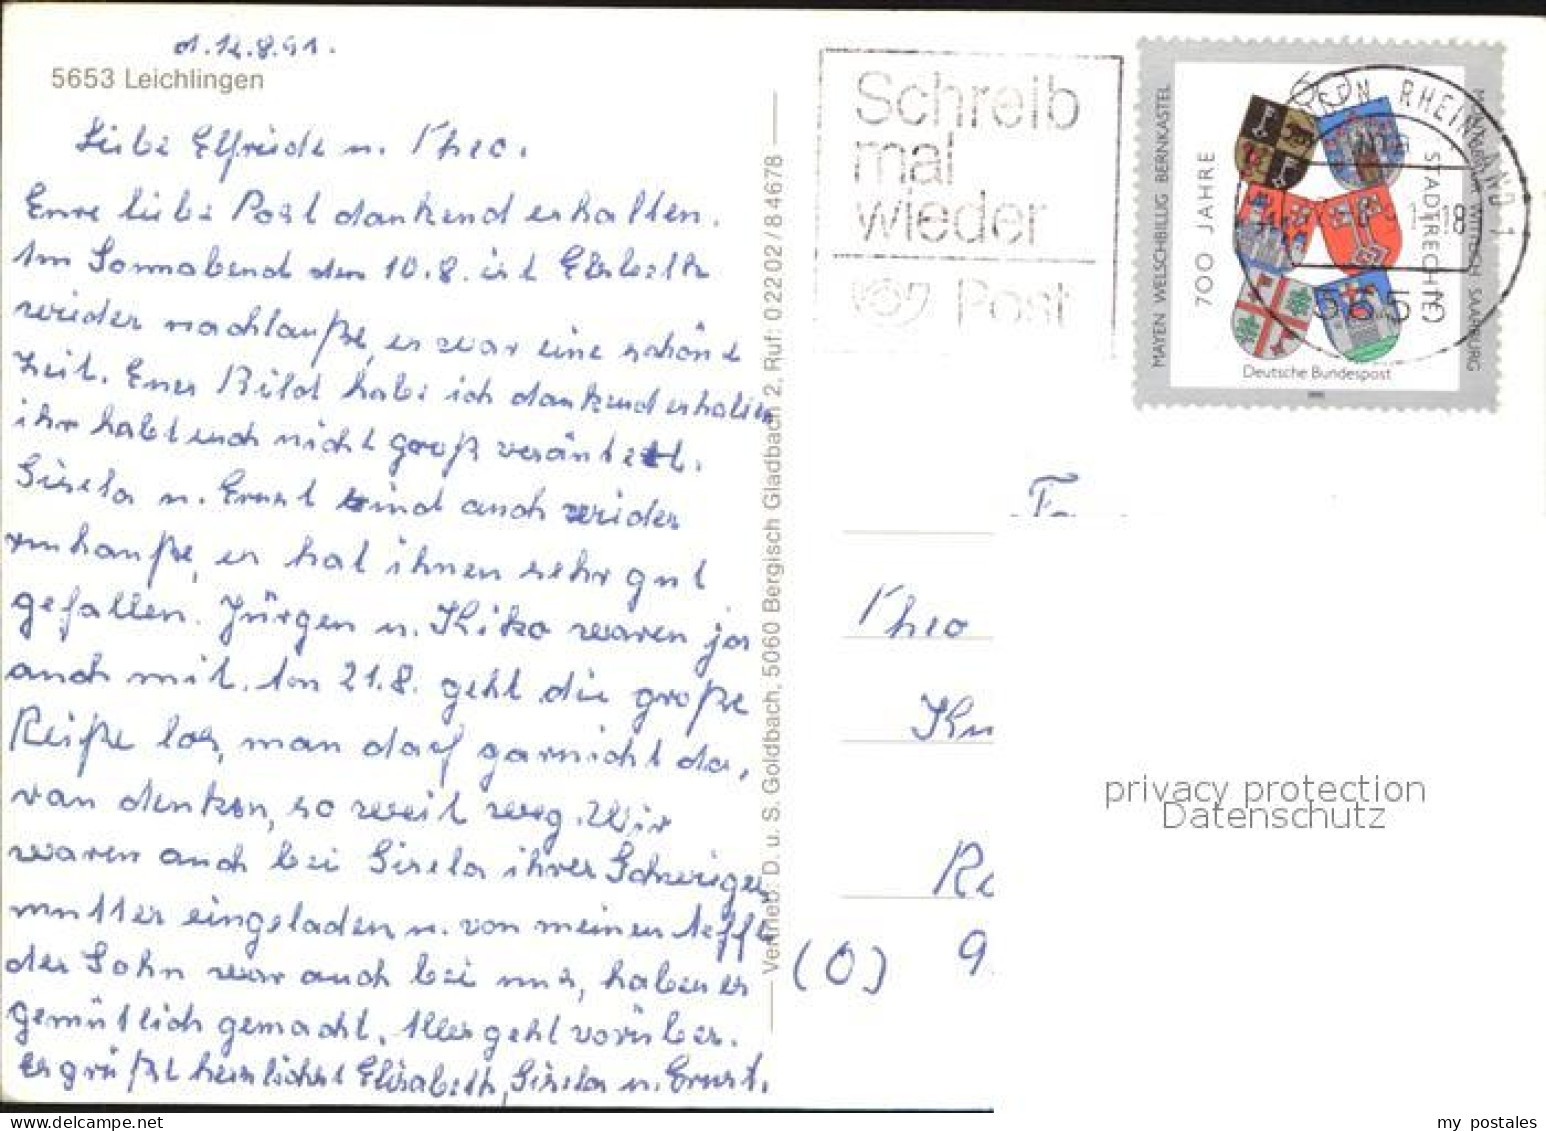 d. 12.8.91.
5653 Leichlingen
Liebe Elfriede u. Theo.
Eure liebe Post dankend erhalten.
Am Sonnabend den 10.8. ist Elsbeth
wieder nachhauße, es war eine schöne
Zeit. Euer Bild habe ich dankend erhalten
ihr habt euch nicht groß verändert.
Gisela u. Ernst sind auch wieder
zuhauße, es hat ihnen sehr gut
gefallen. Jürgen u. Kiko waren ja
auch mit. Am 21.8. geht die große
Reiße los, man darf garnicht da,
van denken, so weit weg. Wir
waren auch bei Gisela ihrer Schwieger
mutter eingeladen u. von meinen Neffe
der Sohn war auch bei uns, haben es
gemütlich gemacht. Alles geht vorüber.
Es grüßt herzlichst Elisabeth, Gisela u. Ernst.
Vertrieb: D. u. S. Goldbach, 5060 Bergisch Gladbach 2, Ruf: 02202/84678
Schreib
mal
wieder
Post
MAYEN WELSCHBILLIG BERNKASTEL
700 JAHRE
STADTRECHTE
WITTLICH SAARBURG
Deutsche Bundespost
RHEINLAND 1
18
Fa
Theo
Kn
Re
(O) 9
privacy protection
Datenschutz
my postales